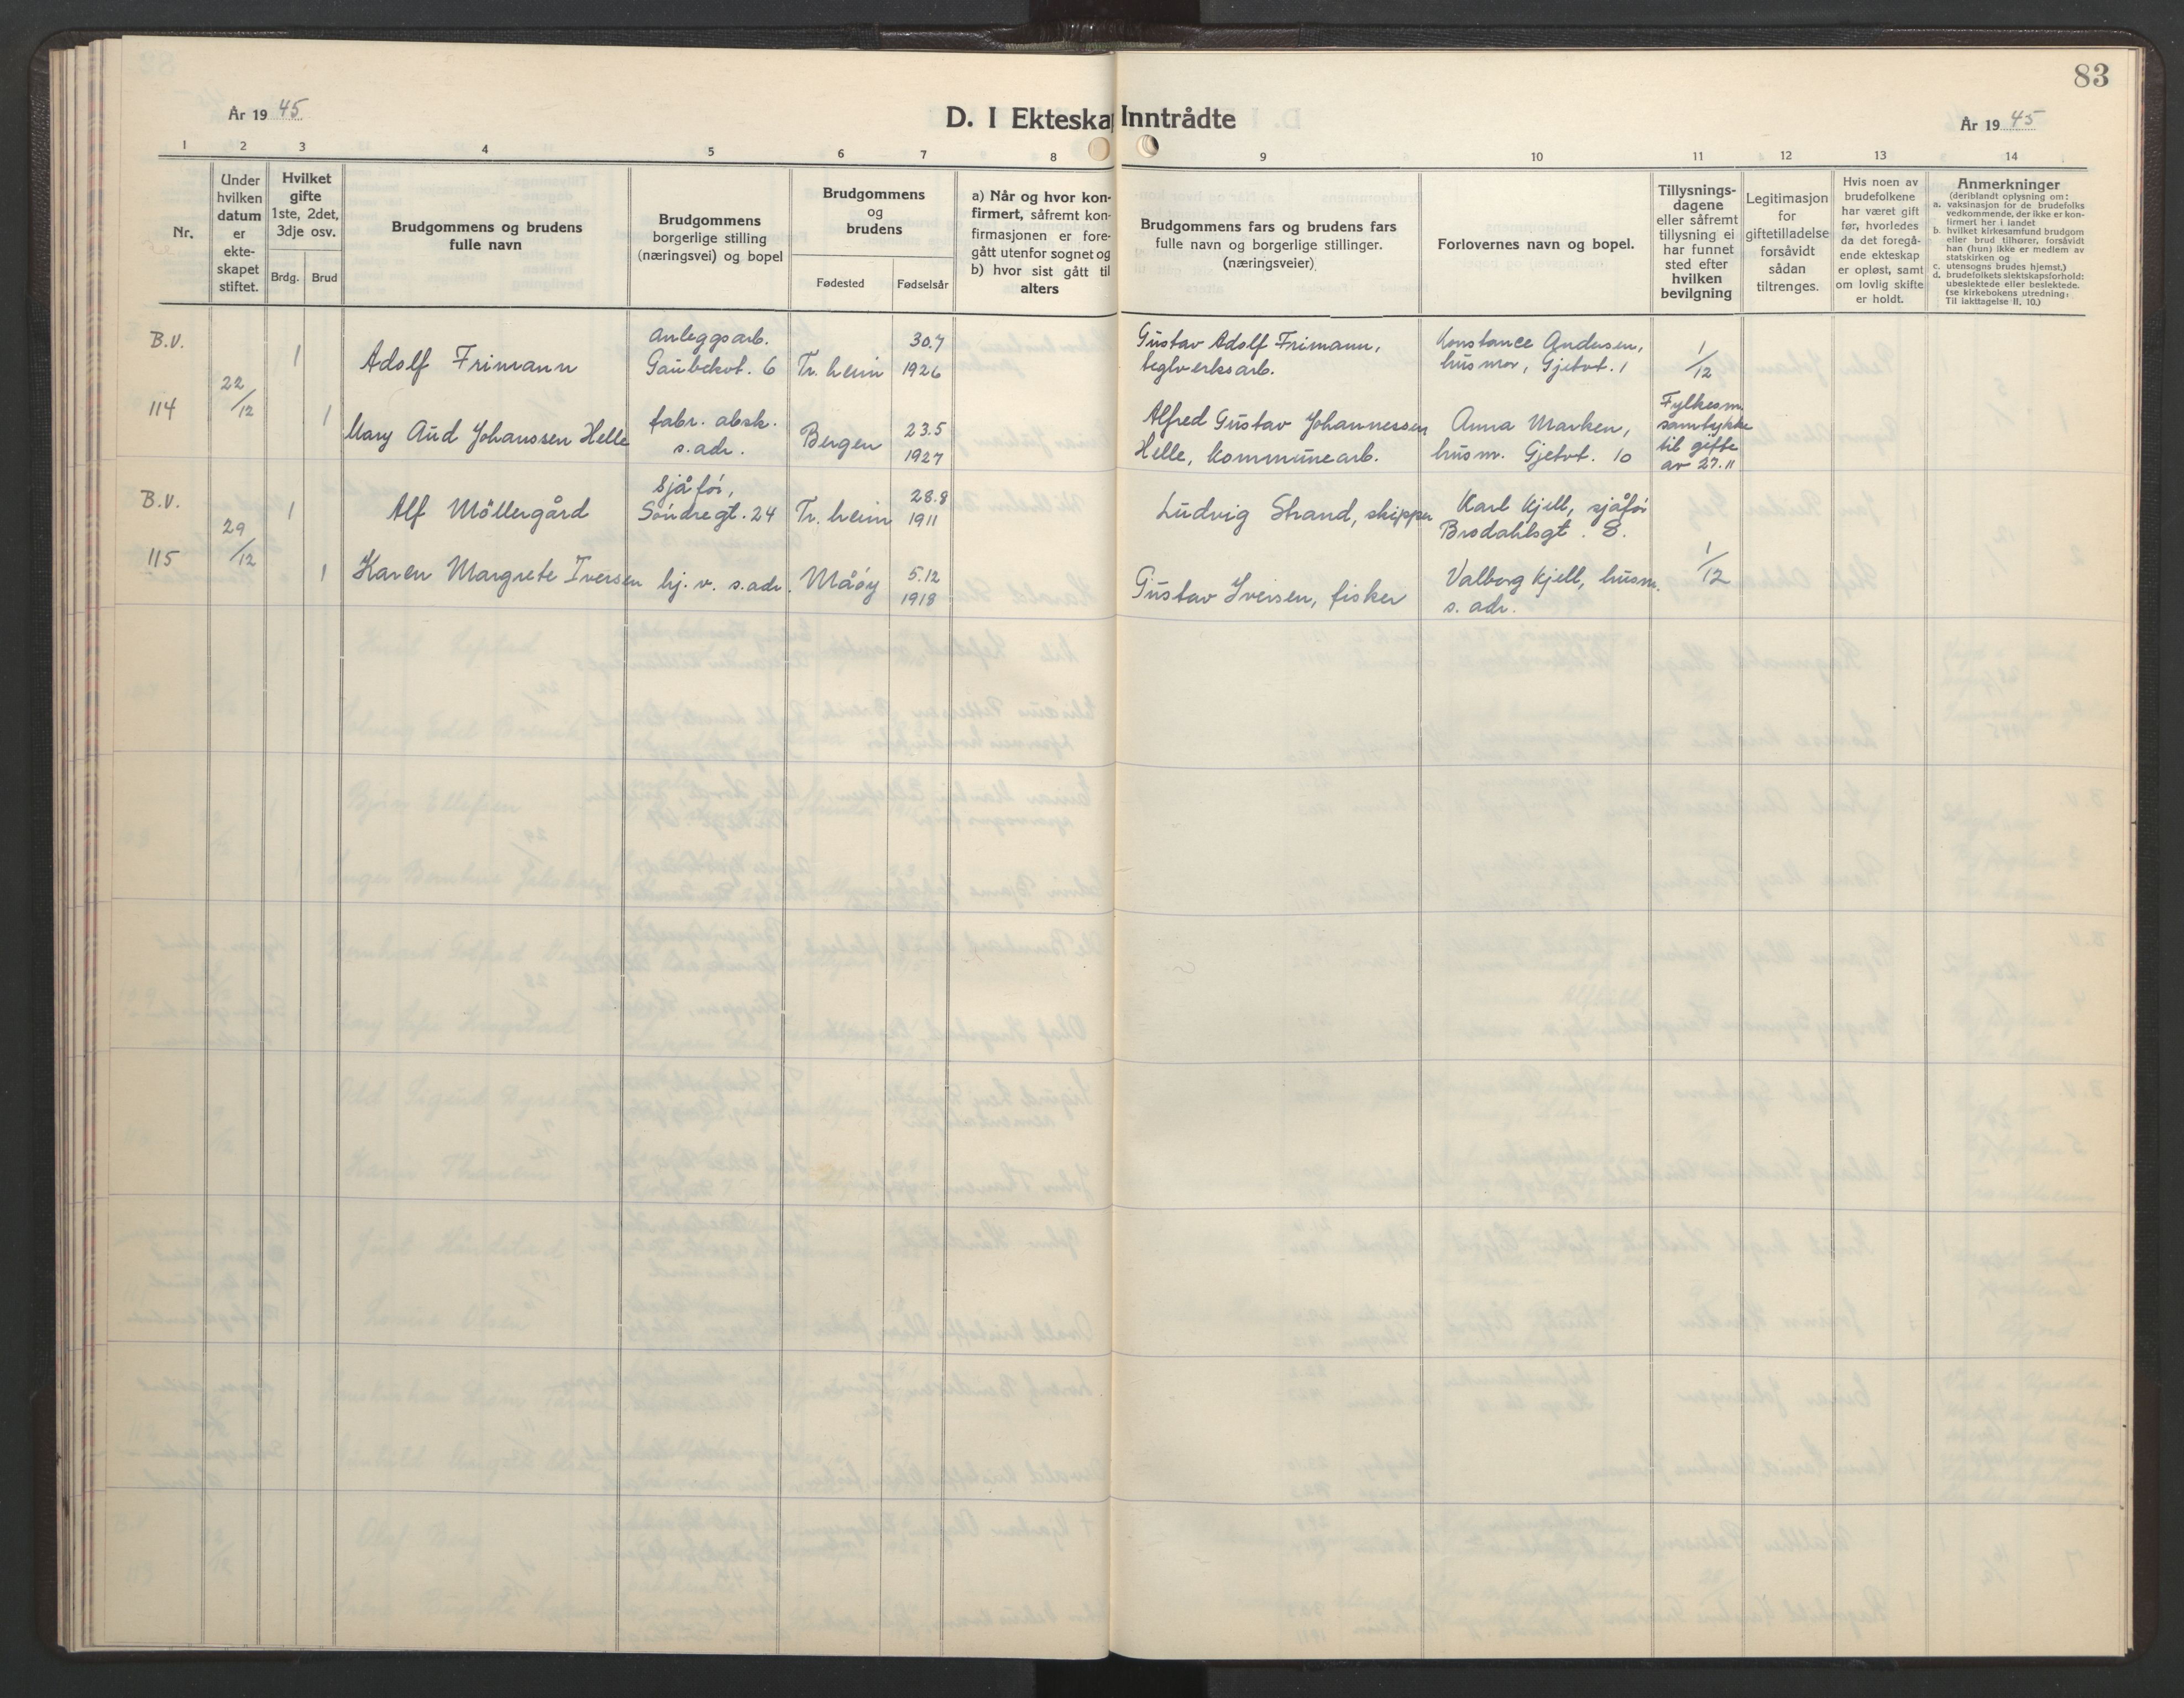 83
År 1945
D. I Ekteskap Inntrådte
År 1945
1 2 3 4 5 6 7 8 9 10 11 12 13 14
Nr.
Under
hvilken
datum
er
ekte-
skapet
stiftet.
Hvilket
gifte
1ste, 2det,
3dje osv.
Brdg. Brud
Brudgommens og brudens
fulle navn
Brudgommens
borgerlige stilling
(næringsvei) og bopel
Brudgommens
og
brudens
Fødested Fødselsår
a) Når og hvor kon-
firmert, såfremt kon-
firmasjonen er fore-
gått utenfor sognet og
b) hvor sist gått til
alters
Brudgommens fars og brudens fars
fulle navn og borgerlige stillinger.
(næringsveier)
Forlovernes navn og bopel.
Tillysnings-
dagene
eller såfremt
tillysning ei
har funnet
sted efter
hvilken
bevilgning
Legitimasjon
for
giftetilladelse
forsåvidt
sådan
tiltrenges.
Hvis noen av
brudefolkene
har været gift
før, hvorledes
da det foregå-
ende ekteskap
er opløst, samt
om lovlig skifte
er holdt.
Anmerkninger
(deriblandt oplysning om:
a. vaksinasjon for de brudefolks
vedkommende, der ikke er kon-
firmert her i landet
b. hvilket kirkesamfund brudgom
eller brud tilhører, forsåvidt
han (hun) ikke er medlem av
statskirken og
c. utensogns brudes hjemst.)
d. brudefolkets slektskapsforhold:
ubeslektede eller beslektede.
(se kirkebokens utredning:
Til iakttagelse II. 10.)
B.V.
114
22/12
1
Adolf Frimann
Anleggsarb.
Gaubekvt. 6
Tr.heim
30.7
1926
Gustav Adolf Frimann,
teglverksarb.
Konstance Andersen,
husmor, Gjetvt. 1
1/12
1
Mary Aud Johanssen Helle
fabr. absk.
s. adr.
Bergen
23.5
1927
Alfred Gustav Johannessen
Helle, kommunearb.
Anna Marken,
husm. Gjetvt. 10
Fylkesm.
samtykke
til gifte
av 27.11
B.V.
115
29/12
1
Alf Möllergård
Sjåför,
Söndregt. 24
Tr.heim
28.8
1911
Ludvig Strand, skipper
Karl Kjell, sjåför
Brodahlsgt. 8.
1/12
1
Karen Margrete Iversen
hj. v. s. adr.
Måöy
5.12
1918
Gustav Iversen, fisker
Valborg Kjell, husm.
s. adr.